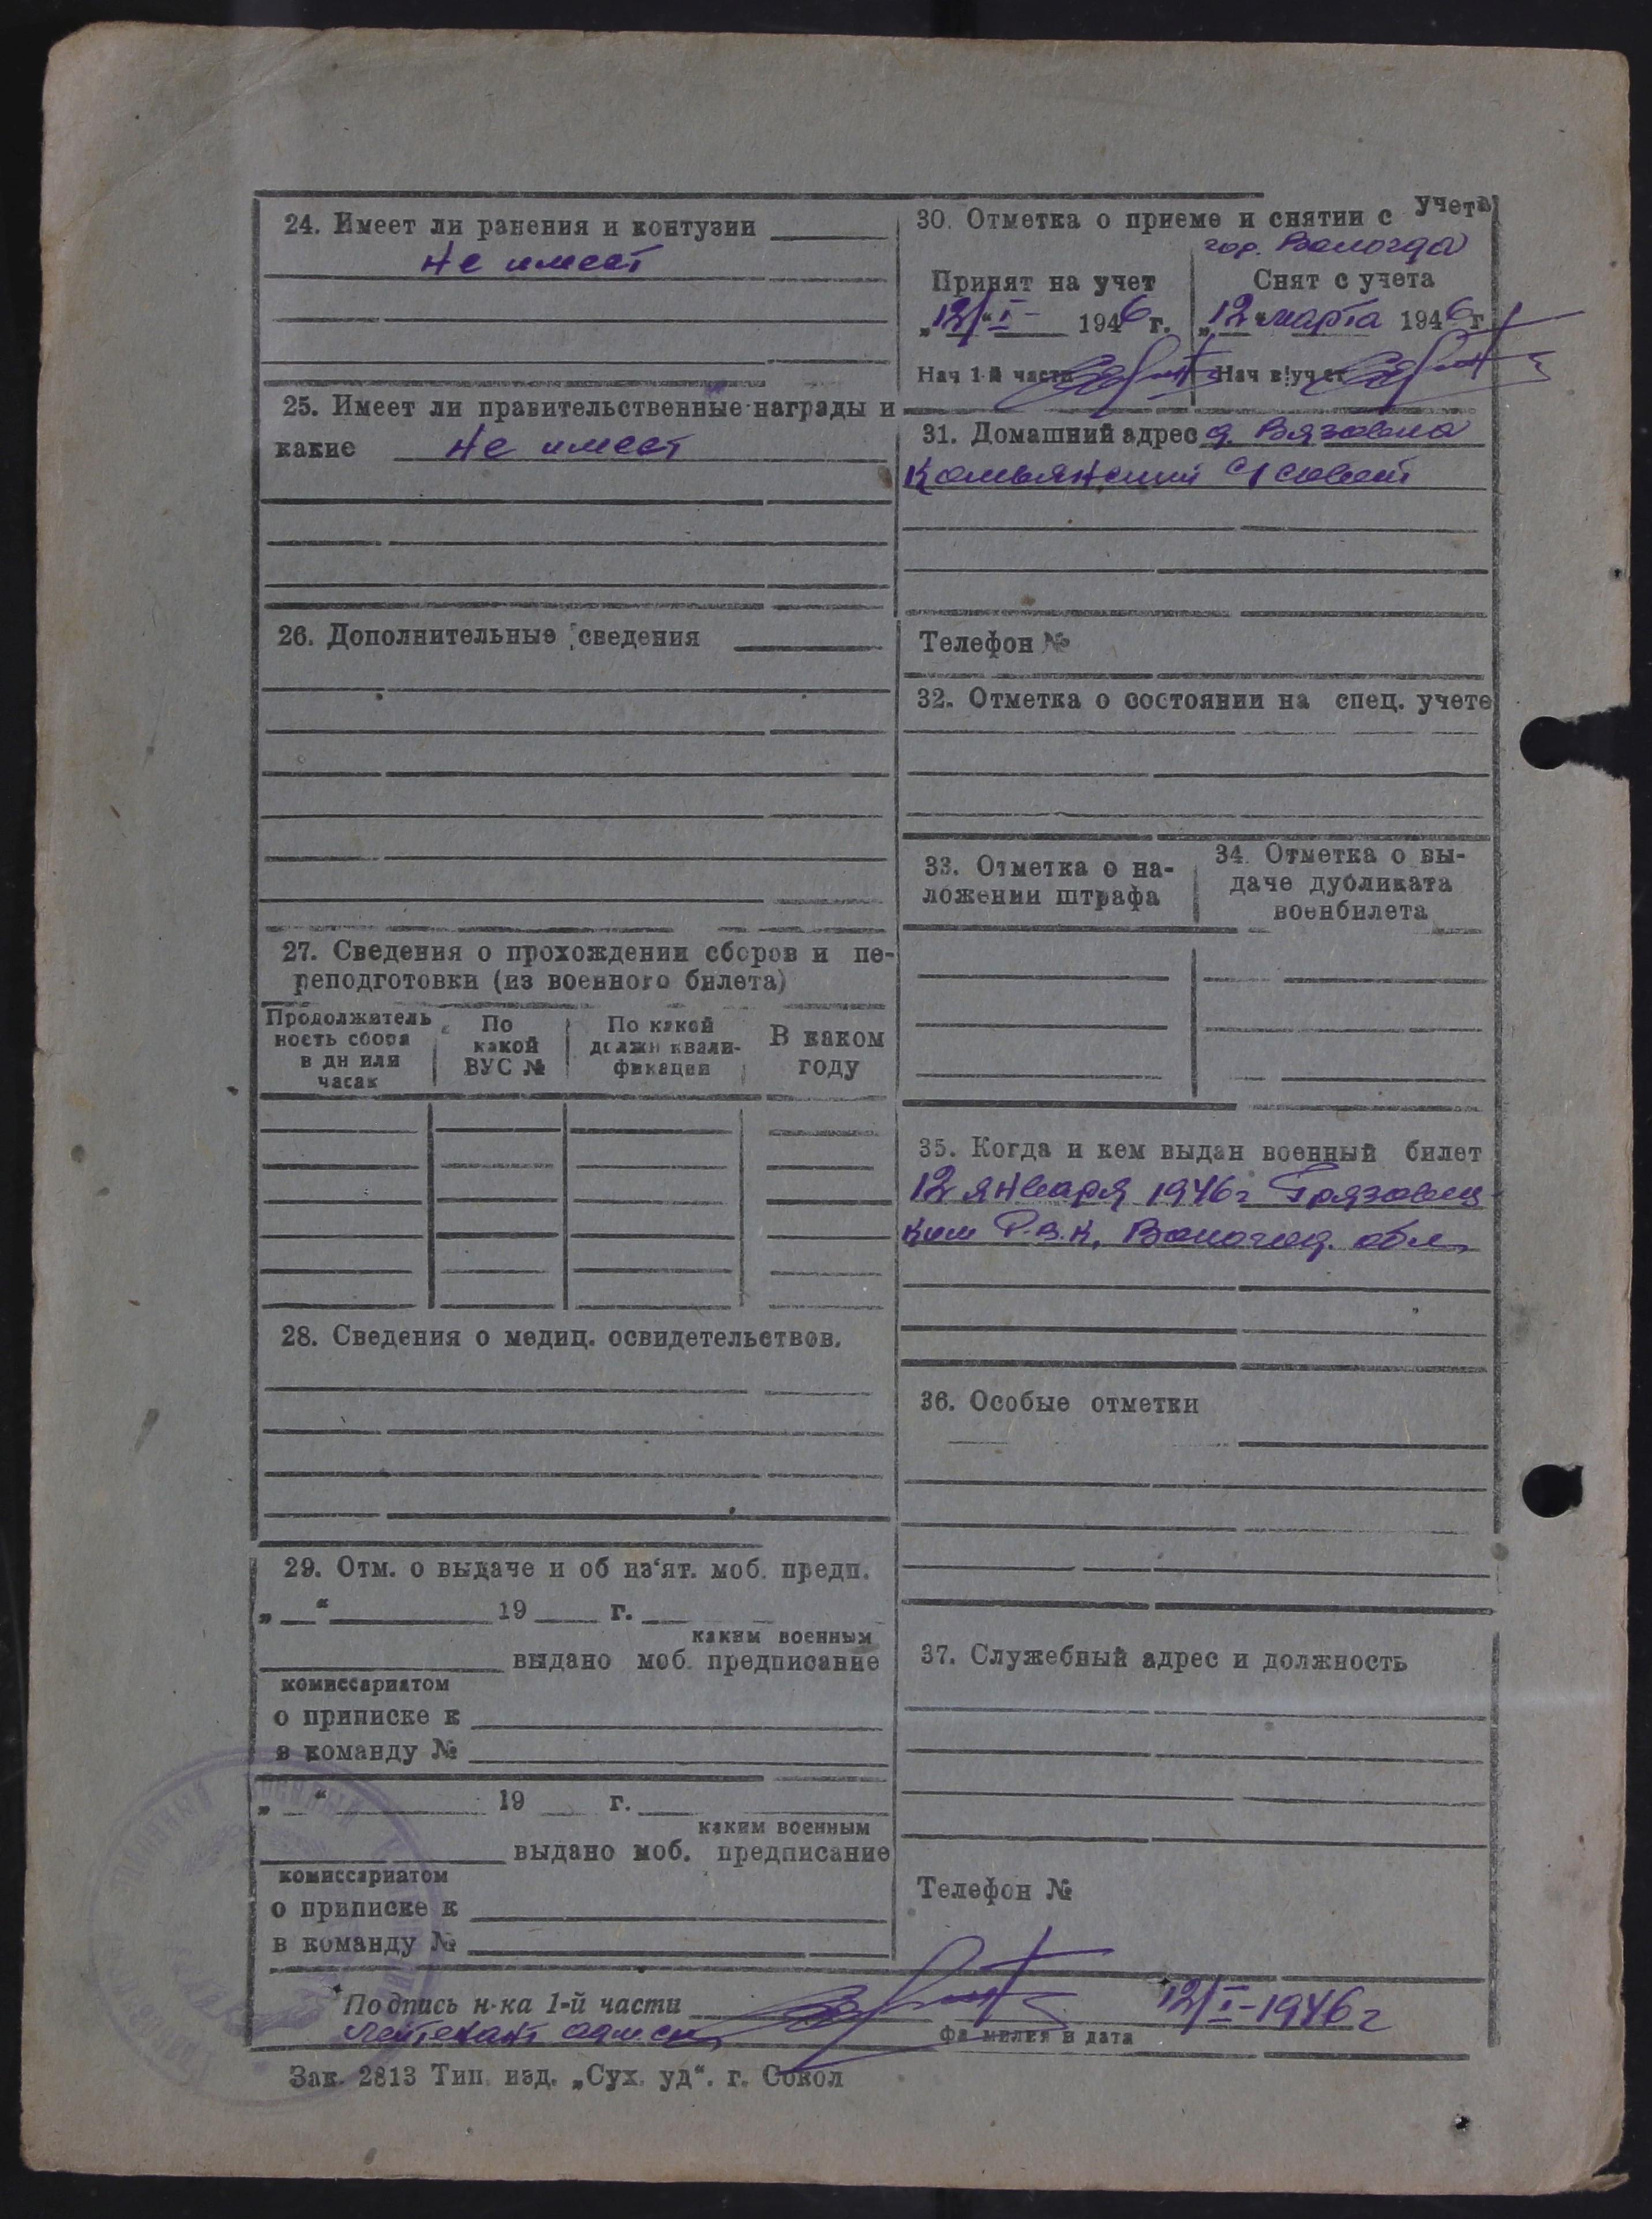 24. Имеет ли ранения и контузии
не имеет
25. Имеет ли правительственные награды и
какие не имеет
26. Дополнительные сведения
27. Сведения о прохождении сборов и пе-
реподготовки (из военного билета)
Продолжитель
ность сбора
в дн или
часах
По
какой
ВУС №
По какой
должн квали-
фикации
В каком
году
28. Сведения о медиц. освидетельствов.
29. Отм. о выдаче и об из‘ят. моб. предп.
„ “ 19 г.
каким военным
выдано моб. предписание
комиссариатом
о приписке к
в команду №
„ “ 19 г.
каким военным
выдано моб. предписание
комиссариатом
о приписке к
в команду №
30. Отметка о приеме и снятии с учета
гор. Вологда
Принят на учет
„12/“ I- 1946 г.
Нач 1-й части
Снят с учета
„12“ марта 1946 г.
Нач в/учет
31. Домашний адрес д. Вязовка
с/совет
Телефон №
32. Отметка о состоянии на спец. учете
33. Отметка о на-
ложении штрафа
34. Отметка о вы-
даче дубликата
военбилета
35. Когда и кем выдан военный билет
12 января 1946 г Грязовец-
ким Р.В.К. Вологод. обл.
36. Особые отметки
37. Служебный адрес и должность
Телефон №
Подпись н-ка 1-й части 12/I-1946 г
лейтенант адм.сл. фамилия и дата
Зак. 2813 Тип. изд. „Сух. уд“. г. Сокол